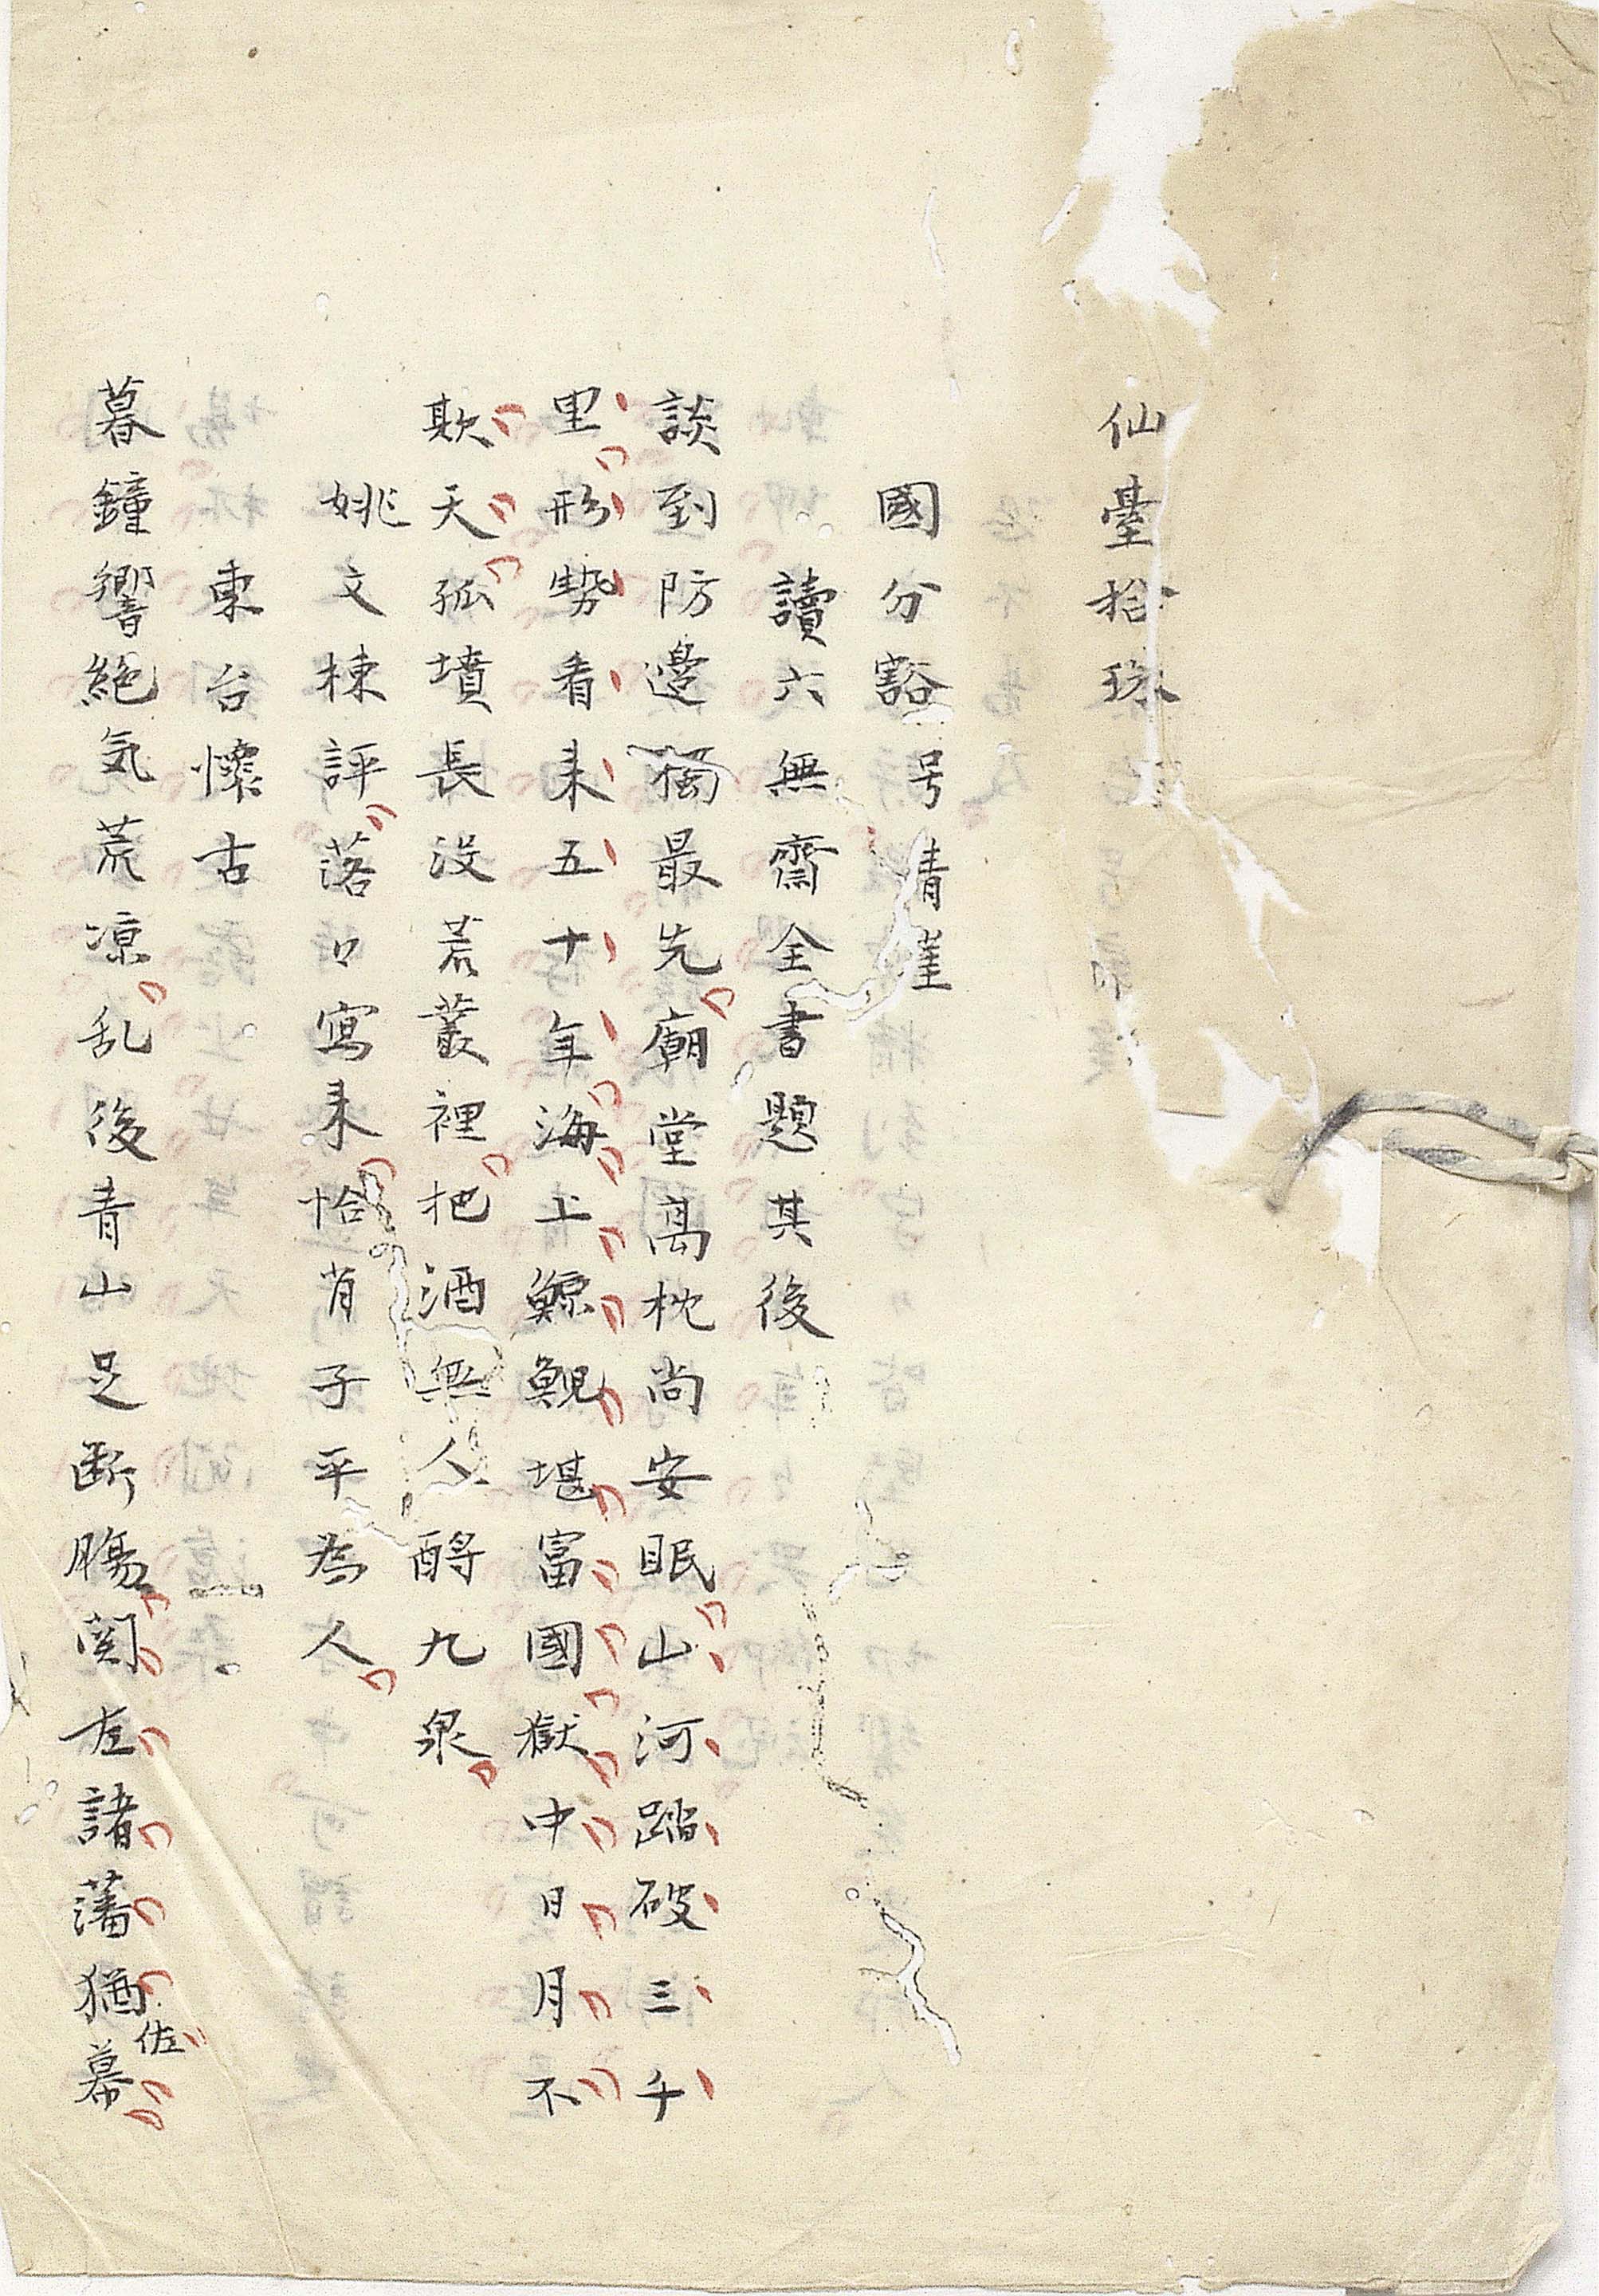 仙臺拾珠
國分豁号精崖
讀六無齋全書題其後
談到防邊獨最先廟堂高枕尚安眠山河踏破三千
里形勢看来五十年海上鯨鯢堪富國獄中日月不
欺天孤墳長没荒叢裡把酒無人酹九泉
姚文棟評落口寫来恰肖子平為人
東台懐古
暮鐘響絶気荒凉乱後青山足断腸関左諸藩猶佐幕